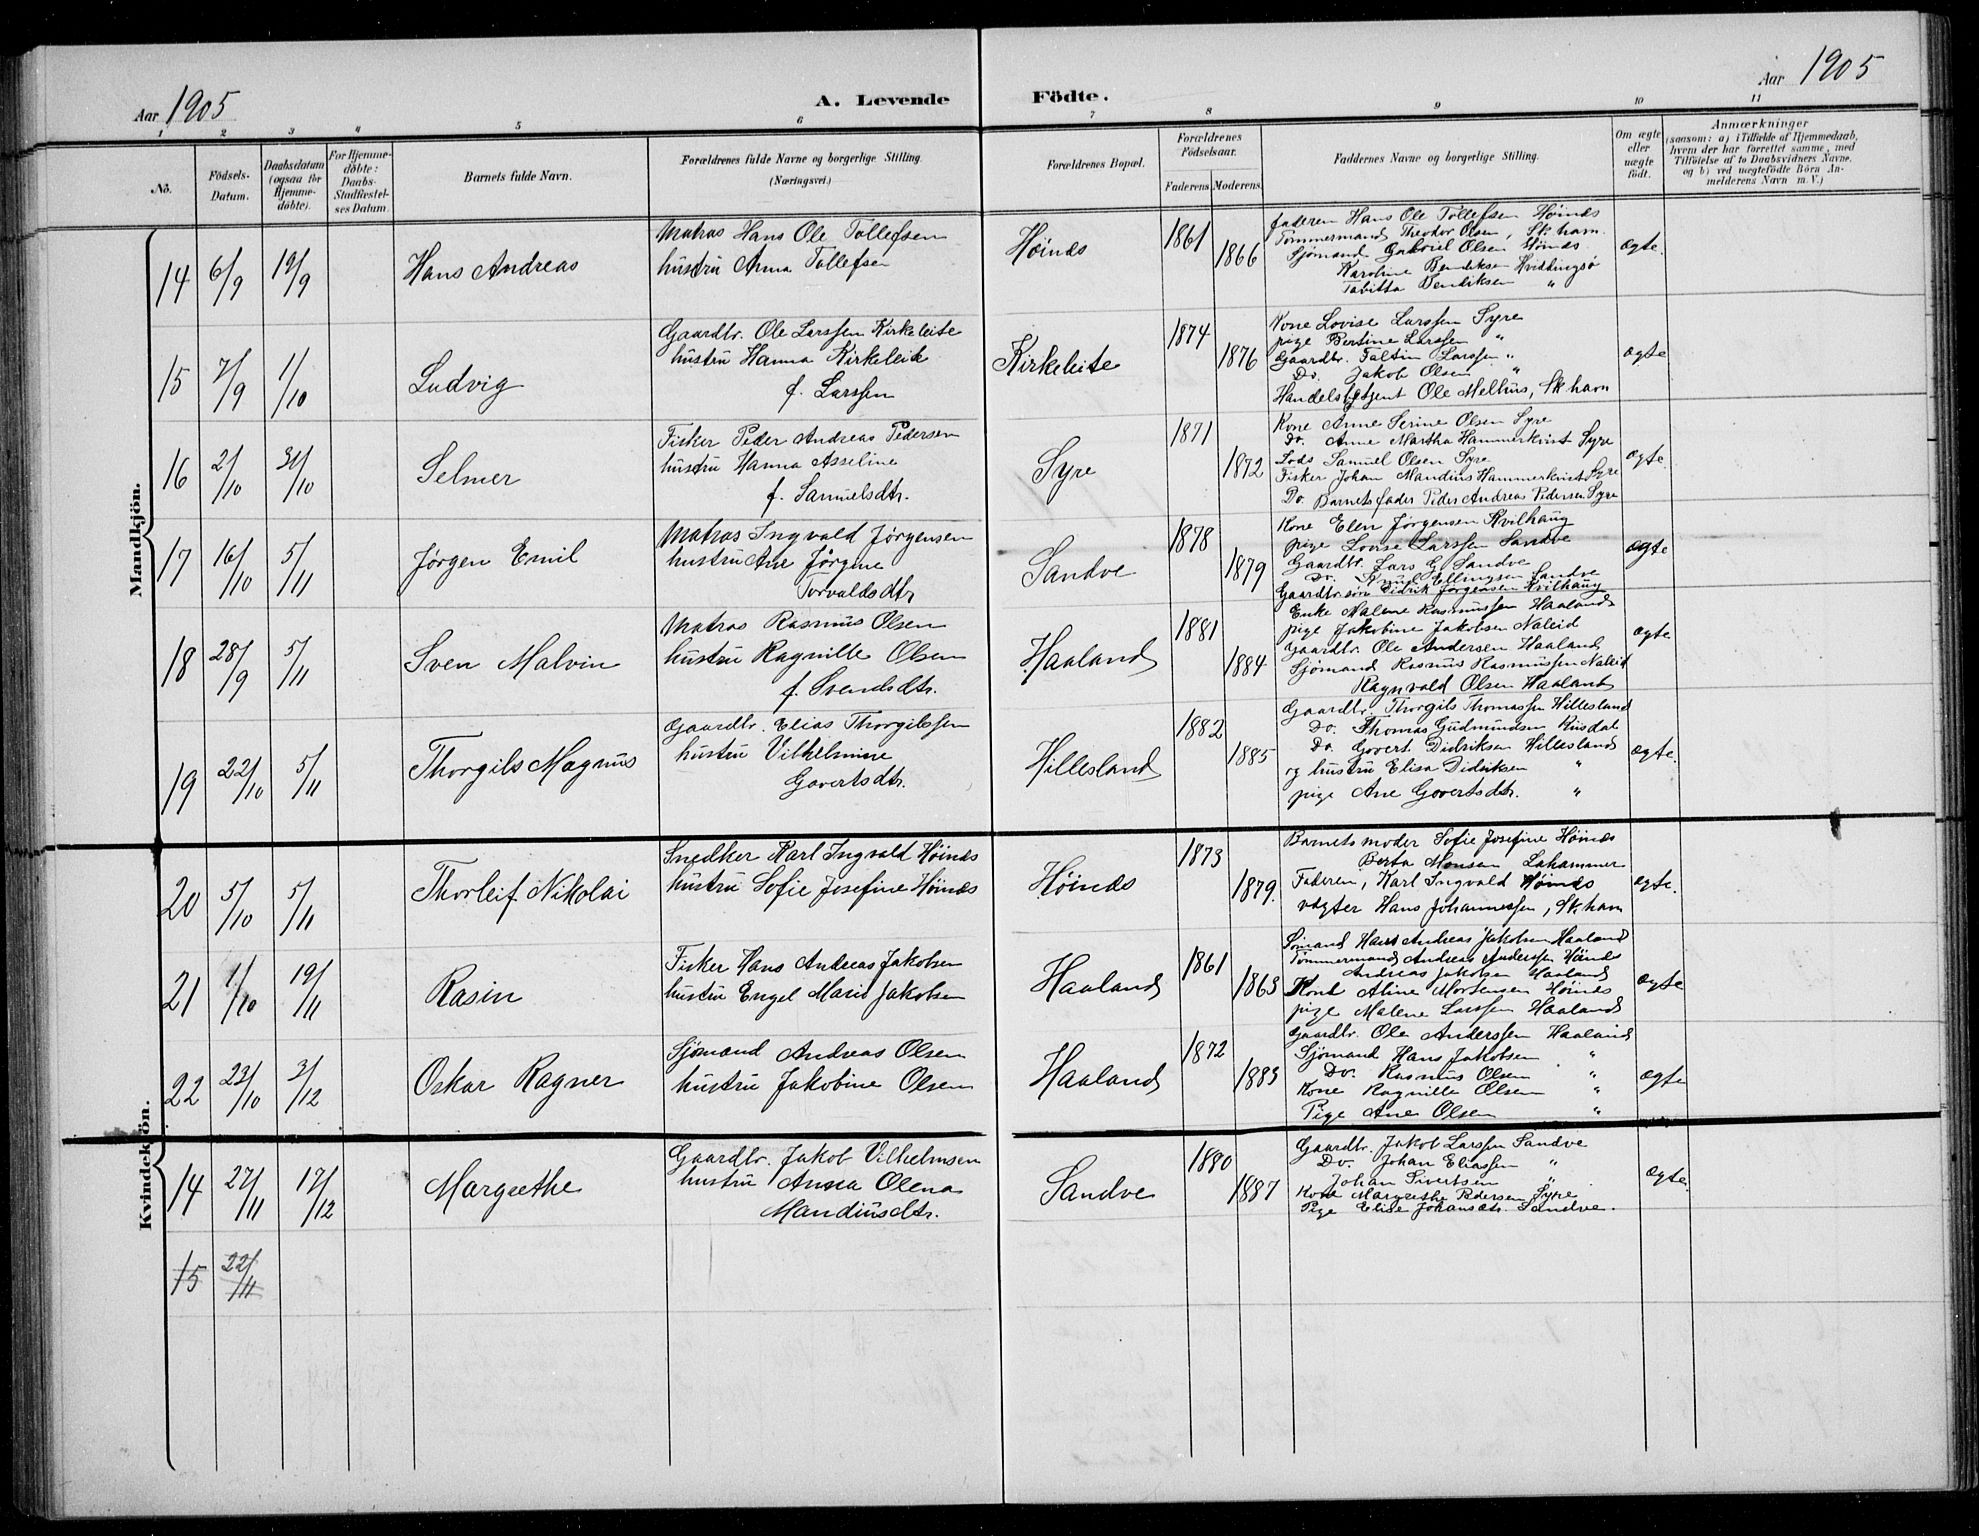 Aar 1905
A. Levende
Födte.
Aar 1905
1 2 3 4 5 6 7 8 9 10 11
No.
Födsels-
Datum.
Daabsdatum
(ogsaa for
Hjemme-
døbte).
For Hjemme-
døbte:
Daabs-
Stadfæstel-
ses Datum.
Barnets fulde Navn.
Forældrenes fulde Navne og borgerlige Stilling.
(Næringsvei.)
Forældrenes Bopæl.
Forældrenes
Födselsaar.
Faderens Moderens.
Faddernes Navne og borgerlige Stilling.
Om ægte
eller
uægte
födt.
Anmærkninger
(saasom: a) i Tilfælde af Hjemmedaab,
hvem der har forrettet samme, med
Tilföielse af to Daabsvidners Navne.
og b) ved uægtefödte Börn An-
melderens Navn m. V.)
Mandkjön.
14 6/9 19/9 Hans Andreas
Matros Hans Ole Tollefsen
hustru Anna Tollefsen
Höinæs 1861 1866
Faderen Hans Ole Tollefsen Höinæs
Tömmermand Theodor Olsen, Sk.havn
Sjömand Gabriel Olsen Höinæs
Karoline Bendiksen Hvidingsö
Tabitta Bendiksen "
ægte.
15 7/9 1/10 Ludvig
Gaardbr. Ole Larssen Kirkeleite
hustru Hanna Kirkeleite
f. Larssen
Kirkeleite 1874 1876
Kone Lovise Larssen Syre
pige Bertine Larssen "
Gaardbr. Faltin Larssen "
Do. Jakob Olsen "
Handelsagent Ole Melhus, Sk.havn
ægte
16 2/10 31/10 Selmer
Fisker Peder Andreas Pedersen
hustru Hanna Asseline
f. Samuelsdtr.
Syre 1871 1872
Kone Anne Serine Olsen Syre
Do. Anne Martha Hammerkvist Syre
Lods Samuel Olsen Syre
Fisker Johan Mandius Hammerkvist Syre
Do. Barnets fader Peder Andreas Pedersen Syre
ægte
17 16/10 5/11 Jörgen Emil
Matros Ingvald Jörgensen
hustru Ane Jörgine
Torvaldsdtr
Sandve 1878 1879
Kone Elen Jörgensen Kvilhaug
pige Lovise Larssen Sandve
Gaardbr. Lars G. Sandve
Do. Knud Ellingsen Sandve
Gaardbr.sön Didrik Jörgensen Kvilhaug
ægte
18 28/9 5/11 Sven Malvin
Matros Rasmus Olsen
hustru Ragnille Olsen
f. Svendsdtr.
Haaland 1881 1884
Enke Malene Rasmussen Haaland
pige Jakobine Jakobsen Naleid
Gaardbr. Ole Andersen Haaland
Sjömand Rasmus Rasmussen Naleid
Ragnvald Olsen Haaland
ægte
19 22/10 5/11 Thorgils Magnus
Gaardbr. Elias Thorgilssen
hustru Vilhelmine
Govertsdtr.
Hillesland 1882 1885
Gaardbr. Thorgils Thomassen Hillesland
Do. Thomas Gudmundsen Risdal
Do. Govert Didriksen Hillesland
og hustru Elisa Didriksen "
pige Ane Govertsdtr. "
ægte.
20 5/10 5/11 Thorleif Nikolai
Snedker Karl Ingvald Höinæs
hustru Sofie Josefine Höinæs
Höinæs 1873 1879.
Barnets moder Sofie Josefine Höinæs
Berta Monsen Lahammer
Faderen, Karl Ingvald Höinæs
vægter Hans Johannessen, Sk.havn
ægte.
21 1/10 19/11 Rasin
Fisker Hans Andreas Jakobsen
hustru Engel Marie Jakobsen
Haaland 1861 1863
Sömand Hans Andreas Jakobsen Haaland
Tömmermand Andreas Anderssen Höinæs
Andreas Jakobsen Haaland
Kone Aline Mortensen Höinæs
pige Malene Larssen Haaland
ægte
22 23/10 3/12 Oskar Ragner
Sjömand Andreas Olsen
hustru Jakobine Olsen
Haaland 1872 1883
Gaardbr. Ole Anderssen Haaland
Sjömand Hans Jakobsen "
Do. Rasmus Olsen "
Kone Ragnille Olsen "
Pige Ane Olsen "
ægte
Kvindekjön.
14 27/11 17/12 Margrethe
Gaardbr. Jakob Vilhelmsen
hustru Anna Olena
Mandiusdtr.
Sandve 1880 1887
Gaardbr. Jakob Larssen Sandve
Do. Johan Eliassen "
Johan Sivertsen "
Kone Margrethe Pedersen Syre
Pige Elise Johansdtr. Sandve.
ægte.
15 22/11